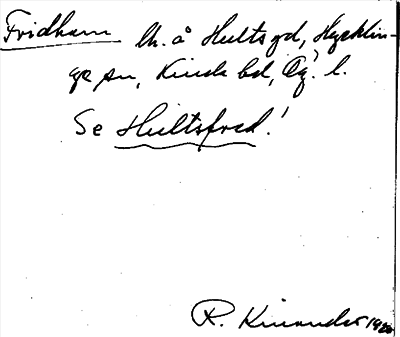 Fridhem lh. å Hultsgd, Hycklin-
ge sn, Kinda hd, Ög. l.
Se Hultsfred!
R. Kinander